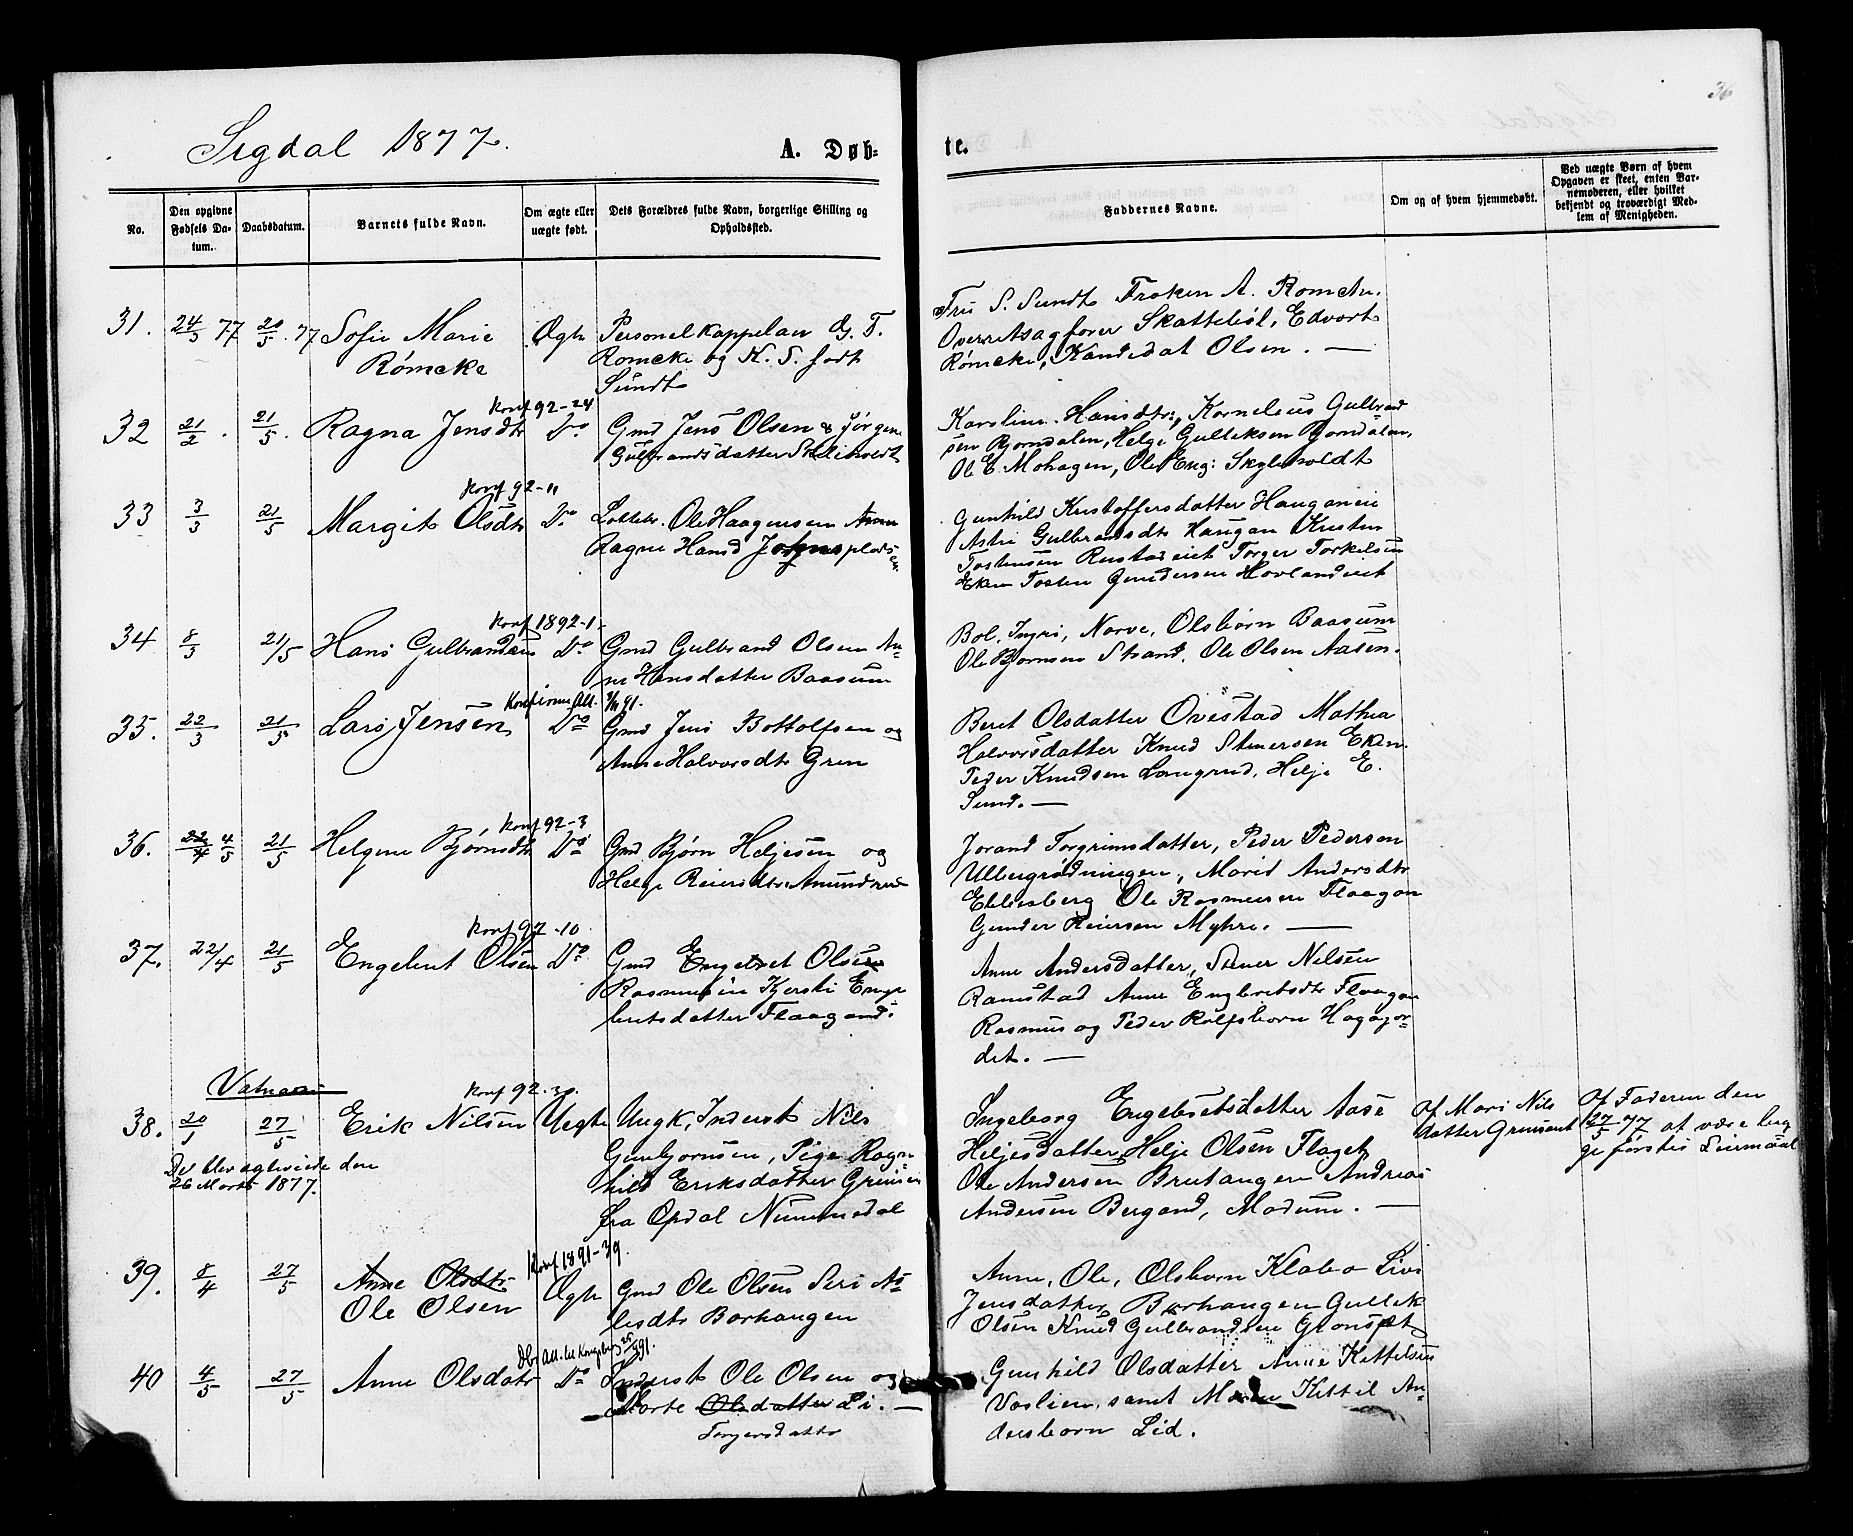 36
Sigdal 1877.
A. Døb-
te.
No.
Den opgivne Fødsels Da-tum.
Daabsdatum.
Barnets fulde Navn.
Om ægte eller uægte født.
Dets Forældres fulde Navn, borgerlige Stilling og Opholdssted.
Faddernes Navne.
Om og af hvem hjemmedøbt.
Ved uægte Børn af hvem
Opgaven er skeet, enten Bar-
nemoderen, eller hvilket
bekjendt og troværdigt Med-
lem af Menigheden.
31. 24/3 77 20/5 77 Sofie Marie Ægte Personelkappelan G. T.
Rømcke Romcke og K. S. født
Sundt
Fru S. Sundt Frøken A. Romcke.
Overretsagfører Skattebøl, Edvart
Rømcke, Kandidat Olsen. —
Konf 92-24
32 21/2. 21/5. Ragna Jensdtr Do Gmd Jens Olsen & Jørgine
Gulbrandsdatter
Karoline Hansdtr:, Kornelius Gulbrand
sen Bjorndalen, Helge Gulliksen Bjorndalen,
Ole E. Mohagen, Ole Eng: Skyleholdt
Konf 92-11
33 3/3 21/5 Margit Olsdtr Do. Ole Haagensen
Ragne Hansd pladsen
Gunhild Kristoffersdatter Hauganeie
Astri Gulbransdtr Haugan Kristen
Tostensen Rustadeiet Torger Torkelsen
Eken Tosten Gundersen Hovlandeiet
Konf 1892-1-
34 8/3 21/5 Hans Gulbrandsen Do Gmd Gulbrand Olsen An-
ne Hansdatter Baasum
Bol, Ingri, Narve, Olsbørn Baasum
Ole Bjornsen Strand, Ole Olsen Aasen.
Konfirm. Att. 91.
35. 22/3 21/5 Lars Jensen Do Gmd Jens Bottolfsen og
Anne Halvorsdtr Gren
Beret Olsdatter Ovestad Mathea
Halvorsdatter Knud Stenersen Eken.
Peder Knudsen Langrud, Helje E.
Lund. —
Konf 92-3
36. 22/4 4/5 21/5 Helgine Bjørnsdtr Do Gmd Bjørn Heljesen og
Helge Reiersdtr Amundrud
Jorand Torgrimsdatter, Peder Pedersen
Ulbergrødningen, Marit Andersdtr
Ebbesberg Ole Rasmusen Flaagan
Gunder Reiersen Myhre. —
Konf 92-10
37. 22/4 21/5 Engebret Olsen Do Gmd Engebret Olsen
Rasmussen Kjersti Enge
bretsdatter Flaagand.
Anne Andersdatter, Stener Nilsen
Ramstad Anne Engbretsdtr Flaagan
Rasmus og Peder Rolfsborn Hagajor-
det. —
Konf 92.30.
38. 20/1 27/5 Erik Nilsen Uegte Ungk, Inderst Nils
Gunbjornsen, Pige Ragn
hild Eriksdatter
fra Opdal Nummedal
Dv blev aglveiede den
26 Marts 1877.
Ingeborg Engebretsdatter Aase
Heljesdatter Helje Olsen Flaget
Ole Andersen Brutangen Andreas
Andersen Bergand, Modum. —
Af Mari Nils
datter
Af Faderen den
27/5 77 at være beg
ge førstes Leiermaal
Konf 1891-39.
39. 8/4 27/5 Anne Olsdtr Ægte Gmd Ole Olsen Seri As
Ole Olsen lesdtr Borhaugen
Anne, Ole, Olsborn Klabo Livi
Jensdatter Borhaugen Gullik
Olsen Knud Gulbrandsen
Att. til Kongsberg 91.
40 4/5 27/5 Anne Olsdatr Do Inderst Ole Olsen og
Marte Olsdatter Li. —
Torgersdattr
Gunhild Olsdatter Anne Kittelsen
Voslien, samt Kittil An-
dersborn Lid.